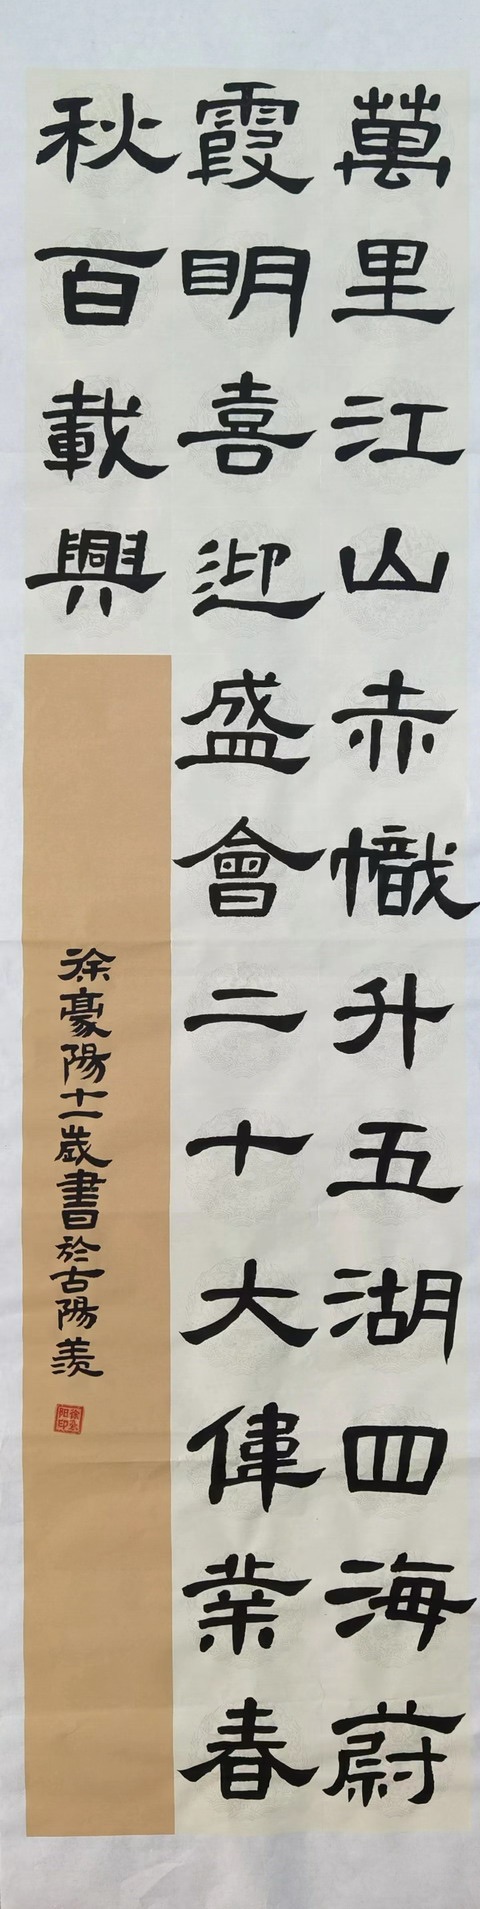 萬里江山赤幟升五湖四海蔚
霞明喜迎盛會二十大偉業春
秋百載興
徐豪陽十一歲書於古陽羨
徐豪
陽印